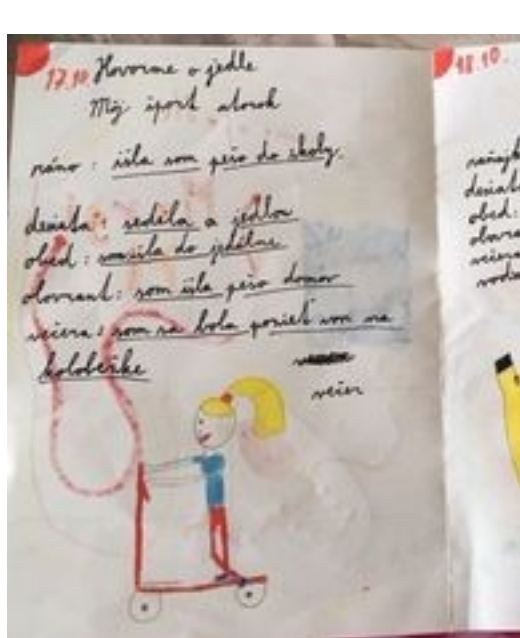 17.10. Hovorme o jedle
Môj šport utorok
ráno : išla som pešo do školy.
desiata : sedela a jedla
obed : som išla do jedálne
olovrant : som išla pešo domov
večera : som sa bola povoziť von na
kolobežke
večer
18.10.
raňajk
desiata
obed :
olovra
večera